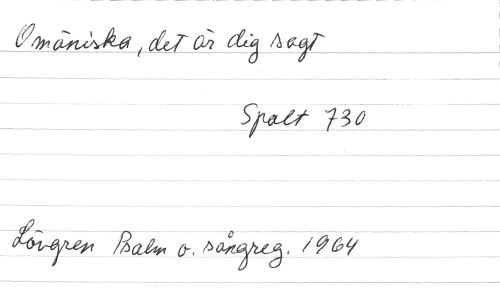 O mäniska, det är dig sagt
Spalt 730
Lövgren Psalm o. sångreg. 1964